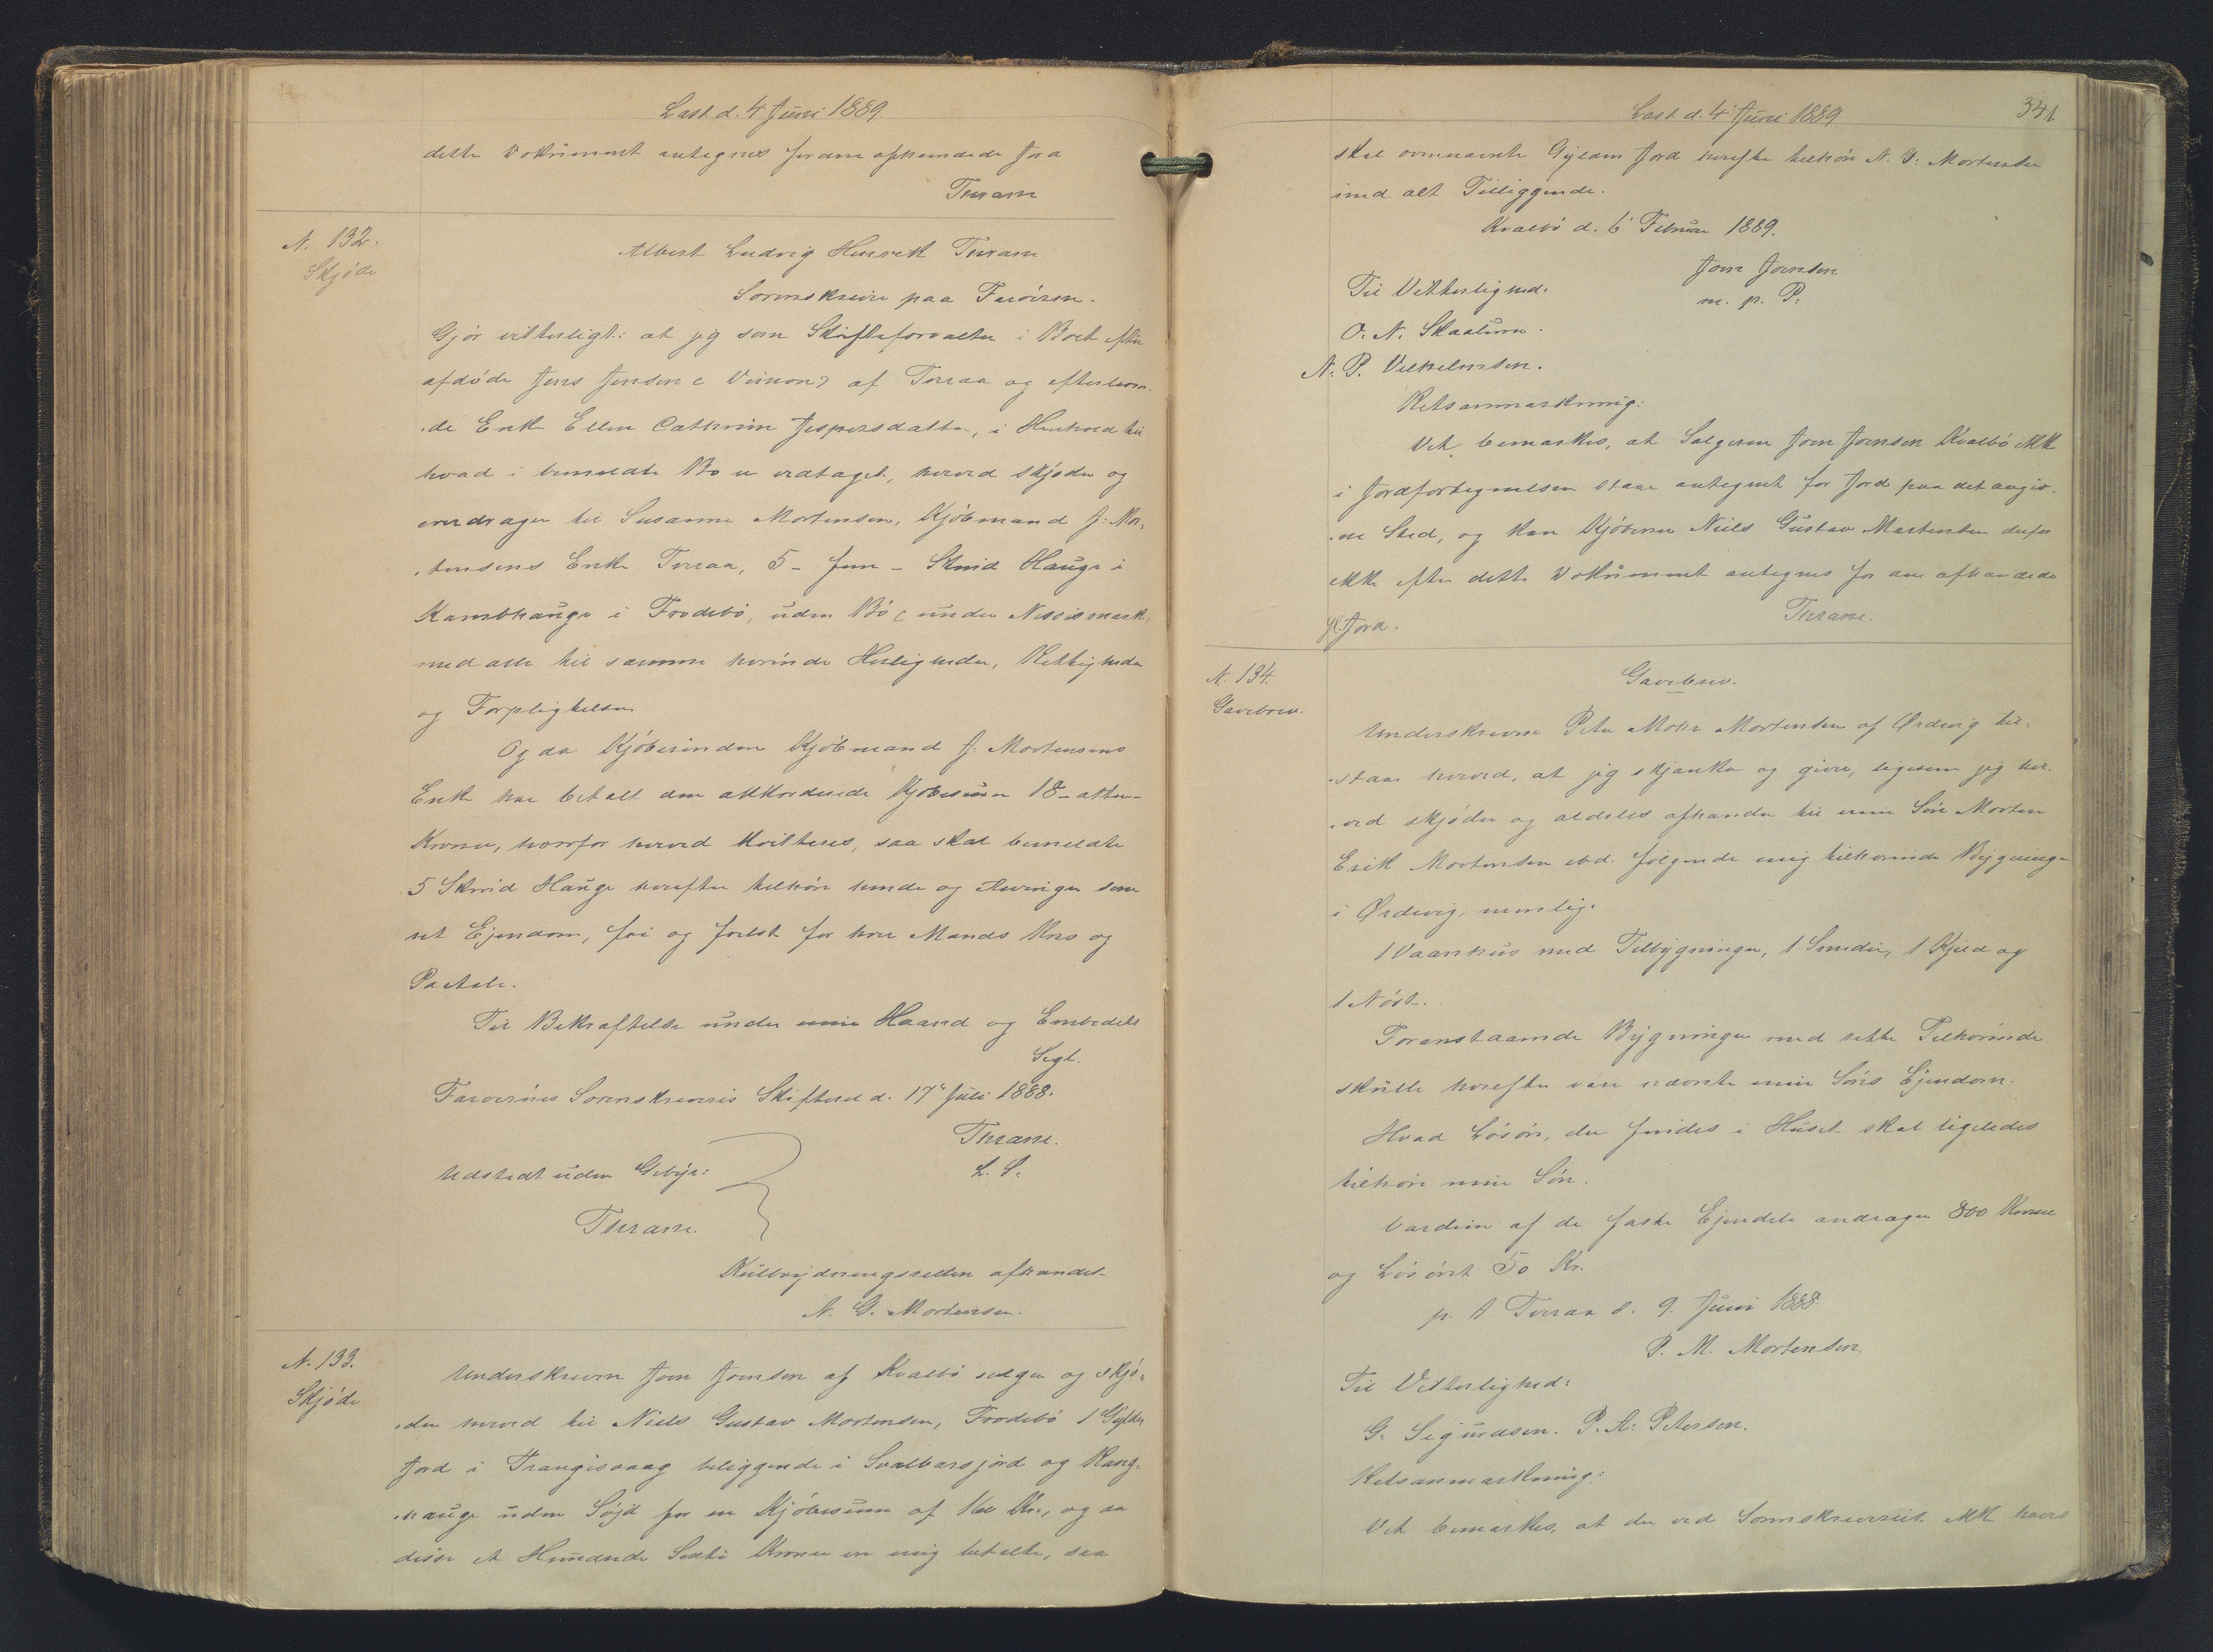 Læst d. 4 Juni 1889.
dette Dokument antegnes for den afhændede Jord
Thrane
N. 132.
Skjøde
Albert Ludvig Henrik Thrane
Sorenskriver paa Færøerne.
Gjør vitterligt: at jeg som Skifteforvalter i Boet efter
afdøde Jens Jensen (Vimon) af Tveraa og efterleven-
de Enke Ellen Cathrine Jespersdatter, i Henhold til
hvad i bemeldte Bo er vedtaget, herved skjøder og
overdrager til Susanne Mortensen, Kjøbmand J. Mor-
tensens Enke Tveraa, 5 - fem - Skind Hauge i
Kambhauge i Frodebø, uden Bø (under Nessismark)
med alle til samme hørende Herligheder, Rettigheder
og Forpligtelser.
Og da Kjøberinden Kjøbmand J. Mortensens
Enke har betalt den akkorderede Kjøbesum 18 - atten -
Kroner, hvorfor herved kvitteres, saa skal bemeldte
5 Skind Hauge herefter tilhøre hende og Arvinger som
ret Ejendom, fri og frelst for hver Mands Krav og
Paatale.
Til Bekræftelse under min Haand og Embedets
Segl.
Færøernes Sorenskriveris Skifteret d. 17de Juli 1888.
Thrane.
L. S.
Udstedt uden Gebyr:
Thrane.
Kulbrydningsretten afhændet
N. G. Mortensen.
N. 133.
Skjøde
Underskreven Joen Joensen af Kvalbø sælger og skjø-
der herved til Niels Gustav Mortensen, Frodebø 1 Gylden
Jord i Trangisvaag beliggende i Svalbarsjord og
hauge uden Søjd for en Kjøbesum af 160 Kr., og da
disse et Hundrede Sexti Kroner er mig betalte, saa
Læst d. 4 Juni 1889.
341
skal ovennævnte Gylden Jord herefter tilhøre N. G. Mortensen
med alt Tilliggende.
Kvalbø d. 6 Februar 1889.
Joen Joensen
m. p. P.
Til Vitterlighed:
O. N. Skaalum.
N. P. Vilhelmsen.
Retsanmærkning:
Det bemærkes, at Sælgeren Joen Joensen Kvalbø ikke
i Jordfortegnelsen staar antegnet for Jord paa det angiv-
ne Sted, og kan Kjøberen Niels Gustav Mortensen derfor
ikke efter dette Dokument antegnes for den afhændede
gl. Jord.
Thrane.
N. 134.
Gavebrev.
Gavebrev.
Underskrevne Peter Mohr Mortensen af Ørdevig til-
staar herved, at jeg skjænker og giver, ligesom jeg her-
ved skjøder og aldeles afhænder til min Søn Morten
Erik Mortensen ibd. følgende mig tilhørende Bygninger
i Ørdevig, nemlig:
1 Vaanhus med Tilbygninger, 1 Smedie, 1 Kjeld og
1 Nøst.
Foranstaaende Bygninger med rette Tilhørende
skulle herefter være nævnte min Søns Ejendom.
Hvad Løsøre, der findes i Huset skal ligeledes
tilhøre min Søn.
Værdien af de faste Ejendele andrager 800 Kroner
og Løsøret 50 Kr.
p. t. Tveraa d. 9. Juni 1888.
P. M. Mortensen.
Til Vitterlighed:
G. Sigurdsen. P. A. Petersen.
Retsanmærkning:
Det bemærkes, at der ved Sorenskriveriet ikke haves